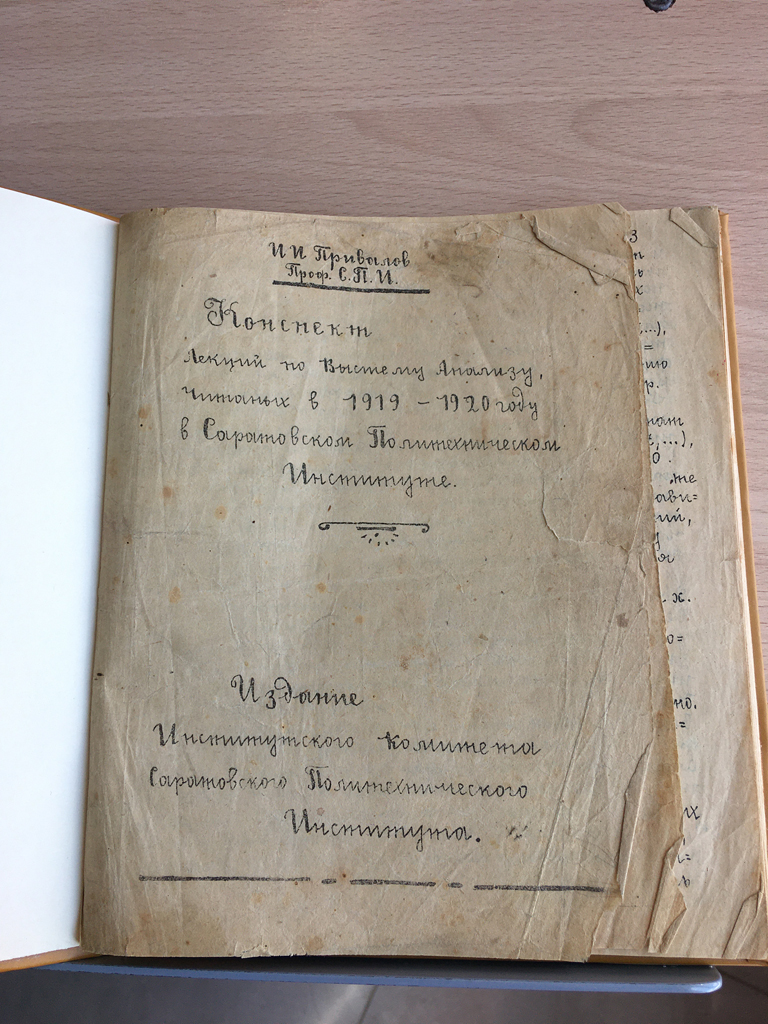 И И Привалов
Проф. С.П.И.
Конспект
Лекций по Высшему Анализу,
Читаных в 1919 – 1920 году
в Саратовском Политехническом
Институте.
Издание
Институтского комитета
Саратовского Политехнического
Института.